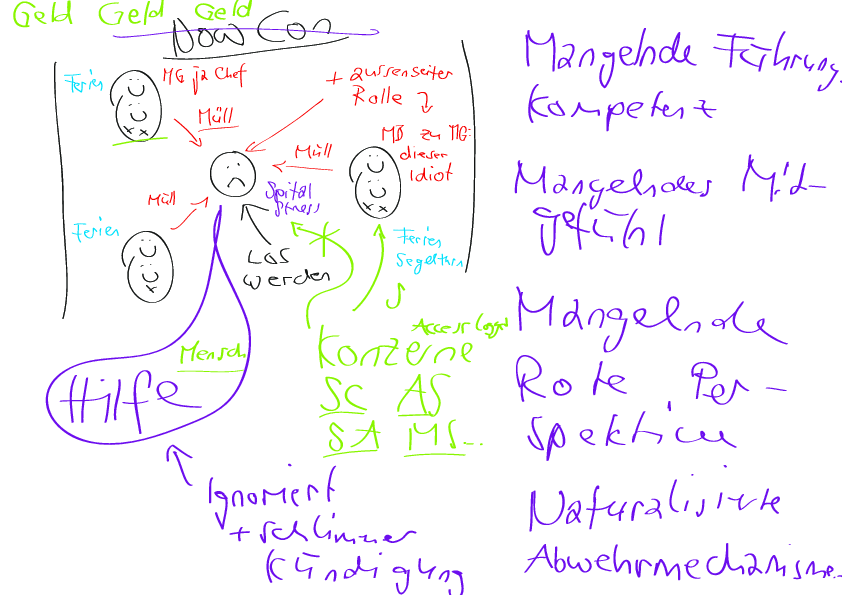 Geld Geld Geld
Now Con
Ferien
MG ja Chef
Müll
+ aussenseiter
Rolle
MD zu MG:
dieser
idiot
Müll
Müll
Spital
Stress
Ferien
Los
werden
Ferien
Segeltörn
Mensch
Hilfe
Access logged
Konzerne
SC AS
SA MS...
Ignoriert
+ schlimmer
Kündigung
Mangelnde Führungs
kompetenz
Mangelndes Mit-
gefühl
Mangelnde
Rote Per-
spektive
Naturalisirte
Abwehrmechanisme...